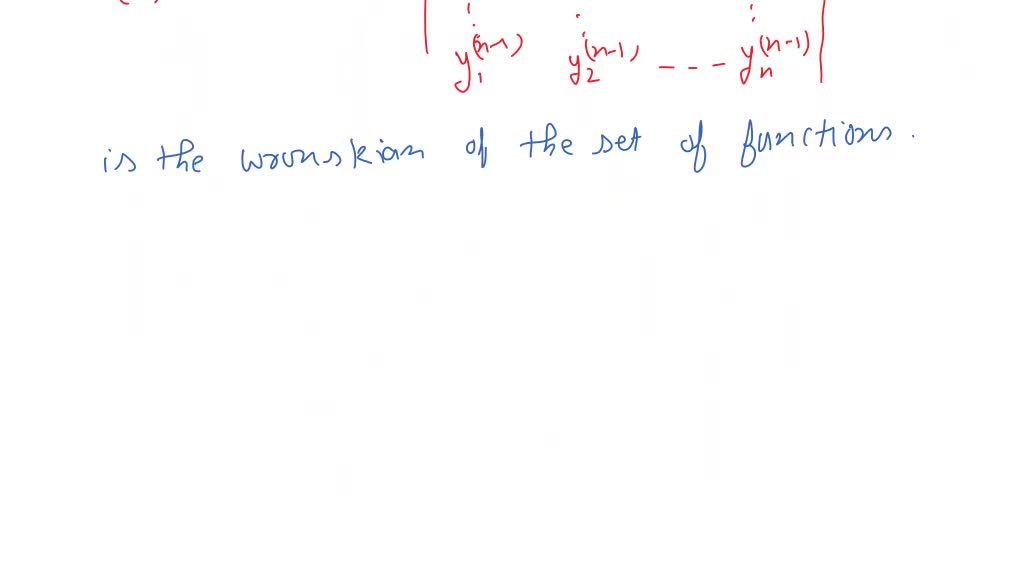 y₁⁽ⁿ⁻¹⁾ y₂⁽ⁿ⁻¹⁾ --- yₙ⁽ⁿ⁻¹⁾
is the wronskian of the set of functions.